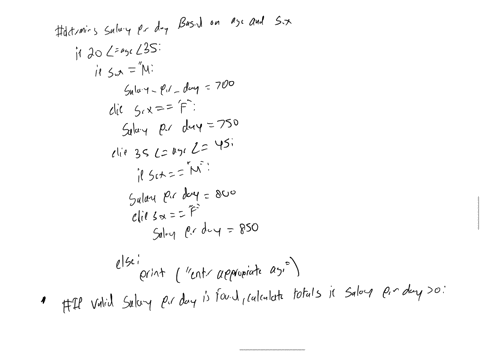 #determins Salary per day Based on age and Sex
if 20 <=age <35:
if sex = "M:
Salary_per_day = 700
elif Sex == "F":
Salary per day = 750
elif 35 <= age <= 45:
if sex == "M":
Salary per day = 800
elif sx == "F"
Salary per day = 850
else:
print ("entr appropriate age")
#If valid Salary per day is found, calculate totals if Salary per day >0: